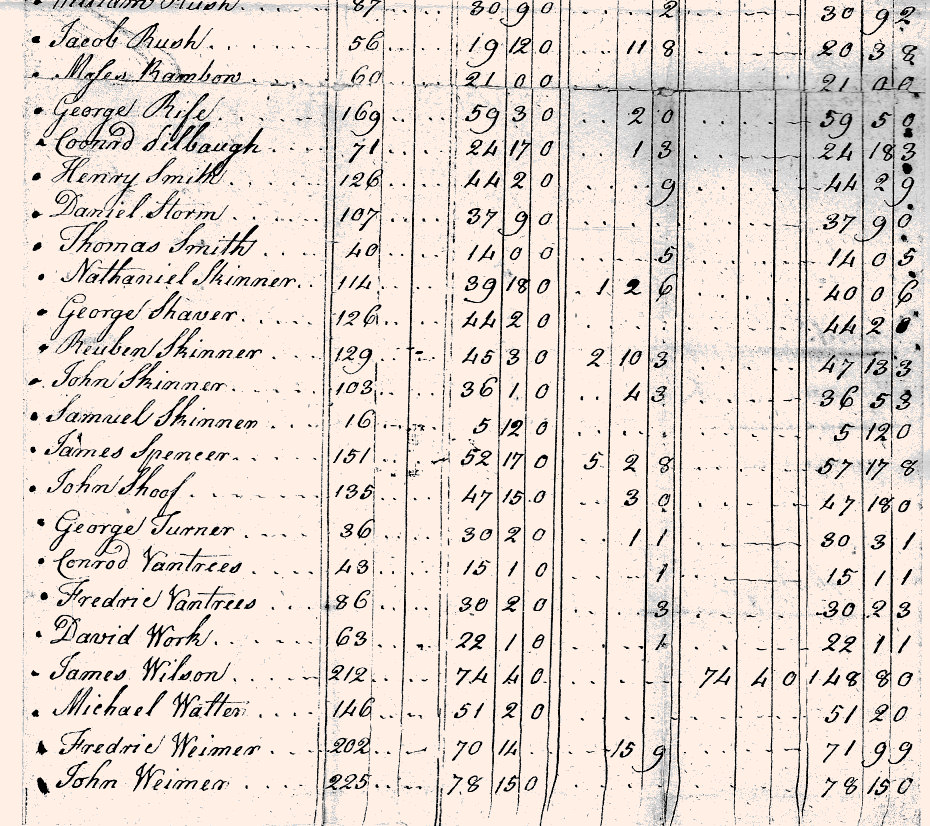 William Rush 87 30 9 0 2 30 9 2
Jacob Rush 56 19 12 0 11 8 20 3 8
Moses Rambow 60 21 0 0 21 0 0
George Rife 169 59 3 0 2 0 59 5 0
Coonrd Silbaugh 71 24 17 0 1 3 24 18 3
Henry Smith 126 44 2 0 9 44 2 9
Daniel Storm 107 37 9 0 37 9 0
Thomas Smith 40 14 0 0 5 14 0 5
Nathaniel Skinner 114 39 18 0 1 2 6 40 0 6
George Shaver 126 44 2 0 44 2
Reuben Skinner 129 45 3 0 2 10 3 47 13 3
John Skinner 103 36 1 0 4 3 36 5 3
Samuel Skinner 16 5 12 0 5 12 0
James Spencer 151 52 17 0 5 2 8 57 17 8
John Shoof 135 47 15 0 3 0 47 18 0
George Turner 36 30 2 0 1 1 30 3 1
Conrod Vantrees 43 15 1 0 1 15 1 1
Fredric Vantrees 86 30 2 0 3 30 2 3
David Work 63 22 1 0 1 22 1 1
James Wilson 212 74 4 0 74 4 0 148 8 0
Michael Walter 146 51 2 0 51 2 0
Fredric Weimer 202 70 14 15 9 71 9 9
John Weimer 225 78 15 0 78 15 0